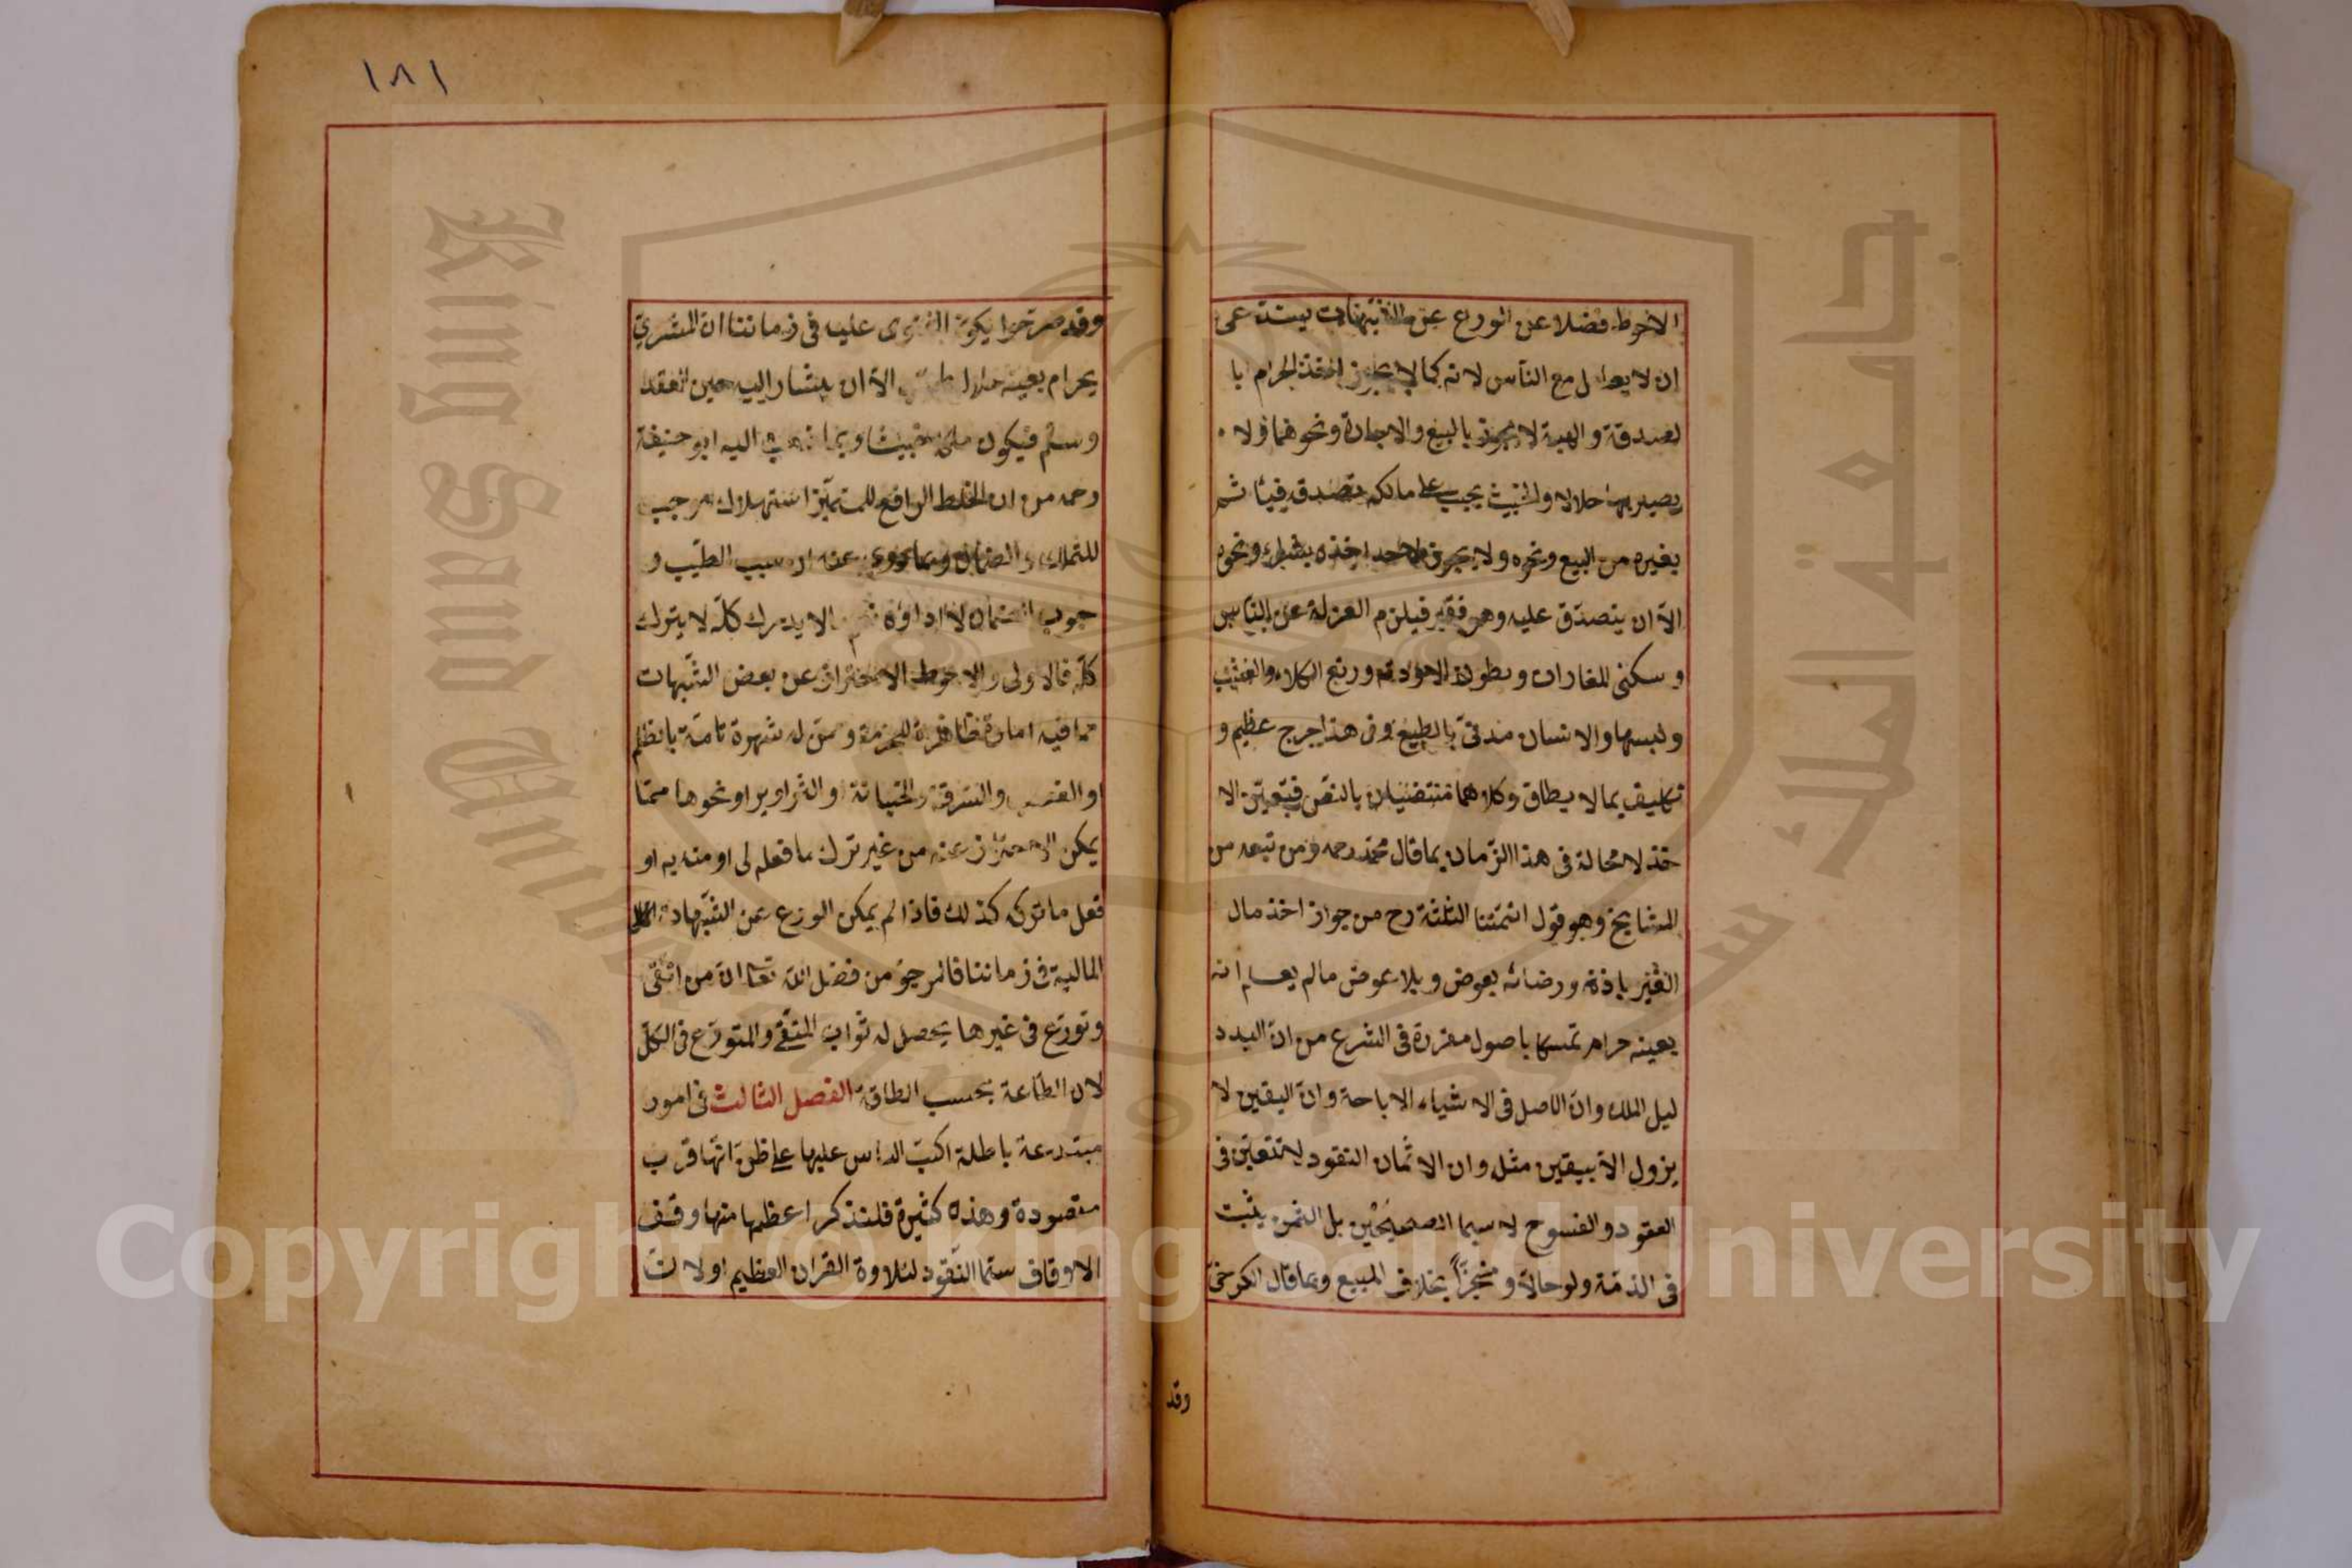 ١٨١
الاحوط فضلا عن الورع عن الشبهات يستدعى
ان لا يعامل مع الناس لانه كما لا يجوز اخذ الحرام با
لصدقة والهبة لا يجوز بالبيع والاجارة ونحوهما ولا
يصير بها حلالا والخبيث يجب على مالكه تصدقه فيأثم
بغيره من البيع ونحوه ولا يجوز لاحد اخذه بشراء ونحوه
الا ان يتصدق عليه وهو فقير فيلزم العزلة عن الناس
وسكنى المغارات وبطون الاودية ورتع الكلاء والعشب
ولبسها والانسان مدنى بالطبع وفى هذا حرج عظيم و
تكليف بما لا يطاق وكلاهما منتفيان بالنص فيتعين الا
خذ لا محالة فى هذا الزمان بما قال محمد رحمه ومن تبعه من
المشايخ وهو قول ائمتنا الثلثة رح من جواز اخذ مال
الغير باذنه ورضائه بعوض وبلا عوض ما لم يعلم انه
بعينه حرام تمسكا باصول مقررة فى الشرع من ان اليد د
ليل الملك وان الاصل فى الاشياء الاباحة وان اليقين لا
يزول الا بيقين مثله وان الاثمان النقود لا تتعين فى
العقود والفسوخ لا سيما الصحيحين بل الثمن يثبت
فى الذمة ولو حالا ومنجزًا بخلاف المبيع وبما قال الكرخى
وقد
وقد صرحوا بكون الفتوى عليه فى زماننا ان المشترى
بحرام بعينه حلال الا ان يشار اليه حين العقد
وسلم فيكون ملكه خبيثا وبما ذهب اليه ابو حنيفة
رحمه من ان الخلط الرافع للتميز استهلاك موجب
للتملك والضمان وبما روى عنه ان سبب الطيب و
جوب الضمان لا اداؤه ثم الا يدرك كله لا يترك
كله فالاولى والاحوط الاحتراز عن بعض الشبهات
مما فيه امارة ظاهرة للحرمة وممن له شهرة تامة بالظلم
او الغصب والسرقة والخيانة او التزاوير او نحوها مما
يمكن الاحتراز عنه من غير ترك ما فعله اولى او منه به او
فعل ما تركه كذلك فاذا لم يمكن الورع عن الشبهات
المالية فى زماننا فالمرجو من فضل الله تعا ان من اتقى
وتورع فى غيرها يحصل له ثواب المتقى والمتورع فى الكل
لان الطاعة بحسب الطاقة الفصل الثالث فى امور
مبتدعة باطلة اكب الناس عليها على ظن انها قرب
مقصودة وهذه كثيرة فلنذكر اعظمها منها وقف
الاوقاف سيما النقود لتلاوة القران العظيم او لان
King Saud University
جامعة الملك سعود
1957
Copyright © King Saud University